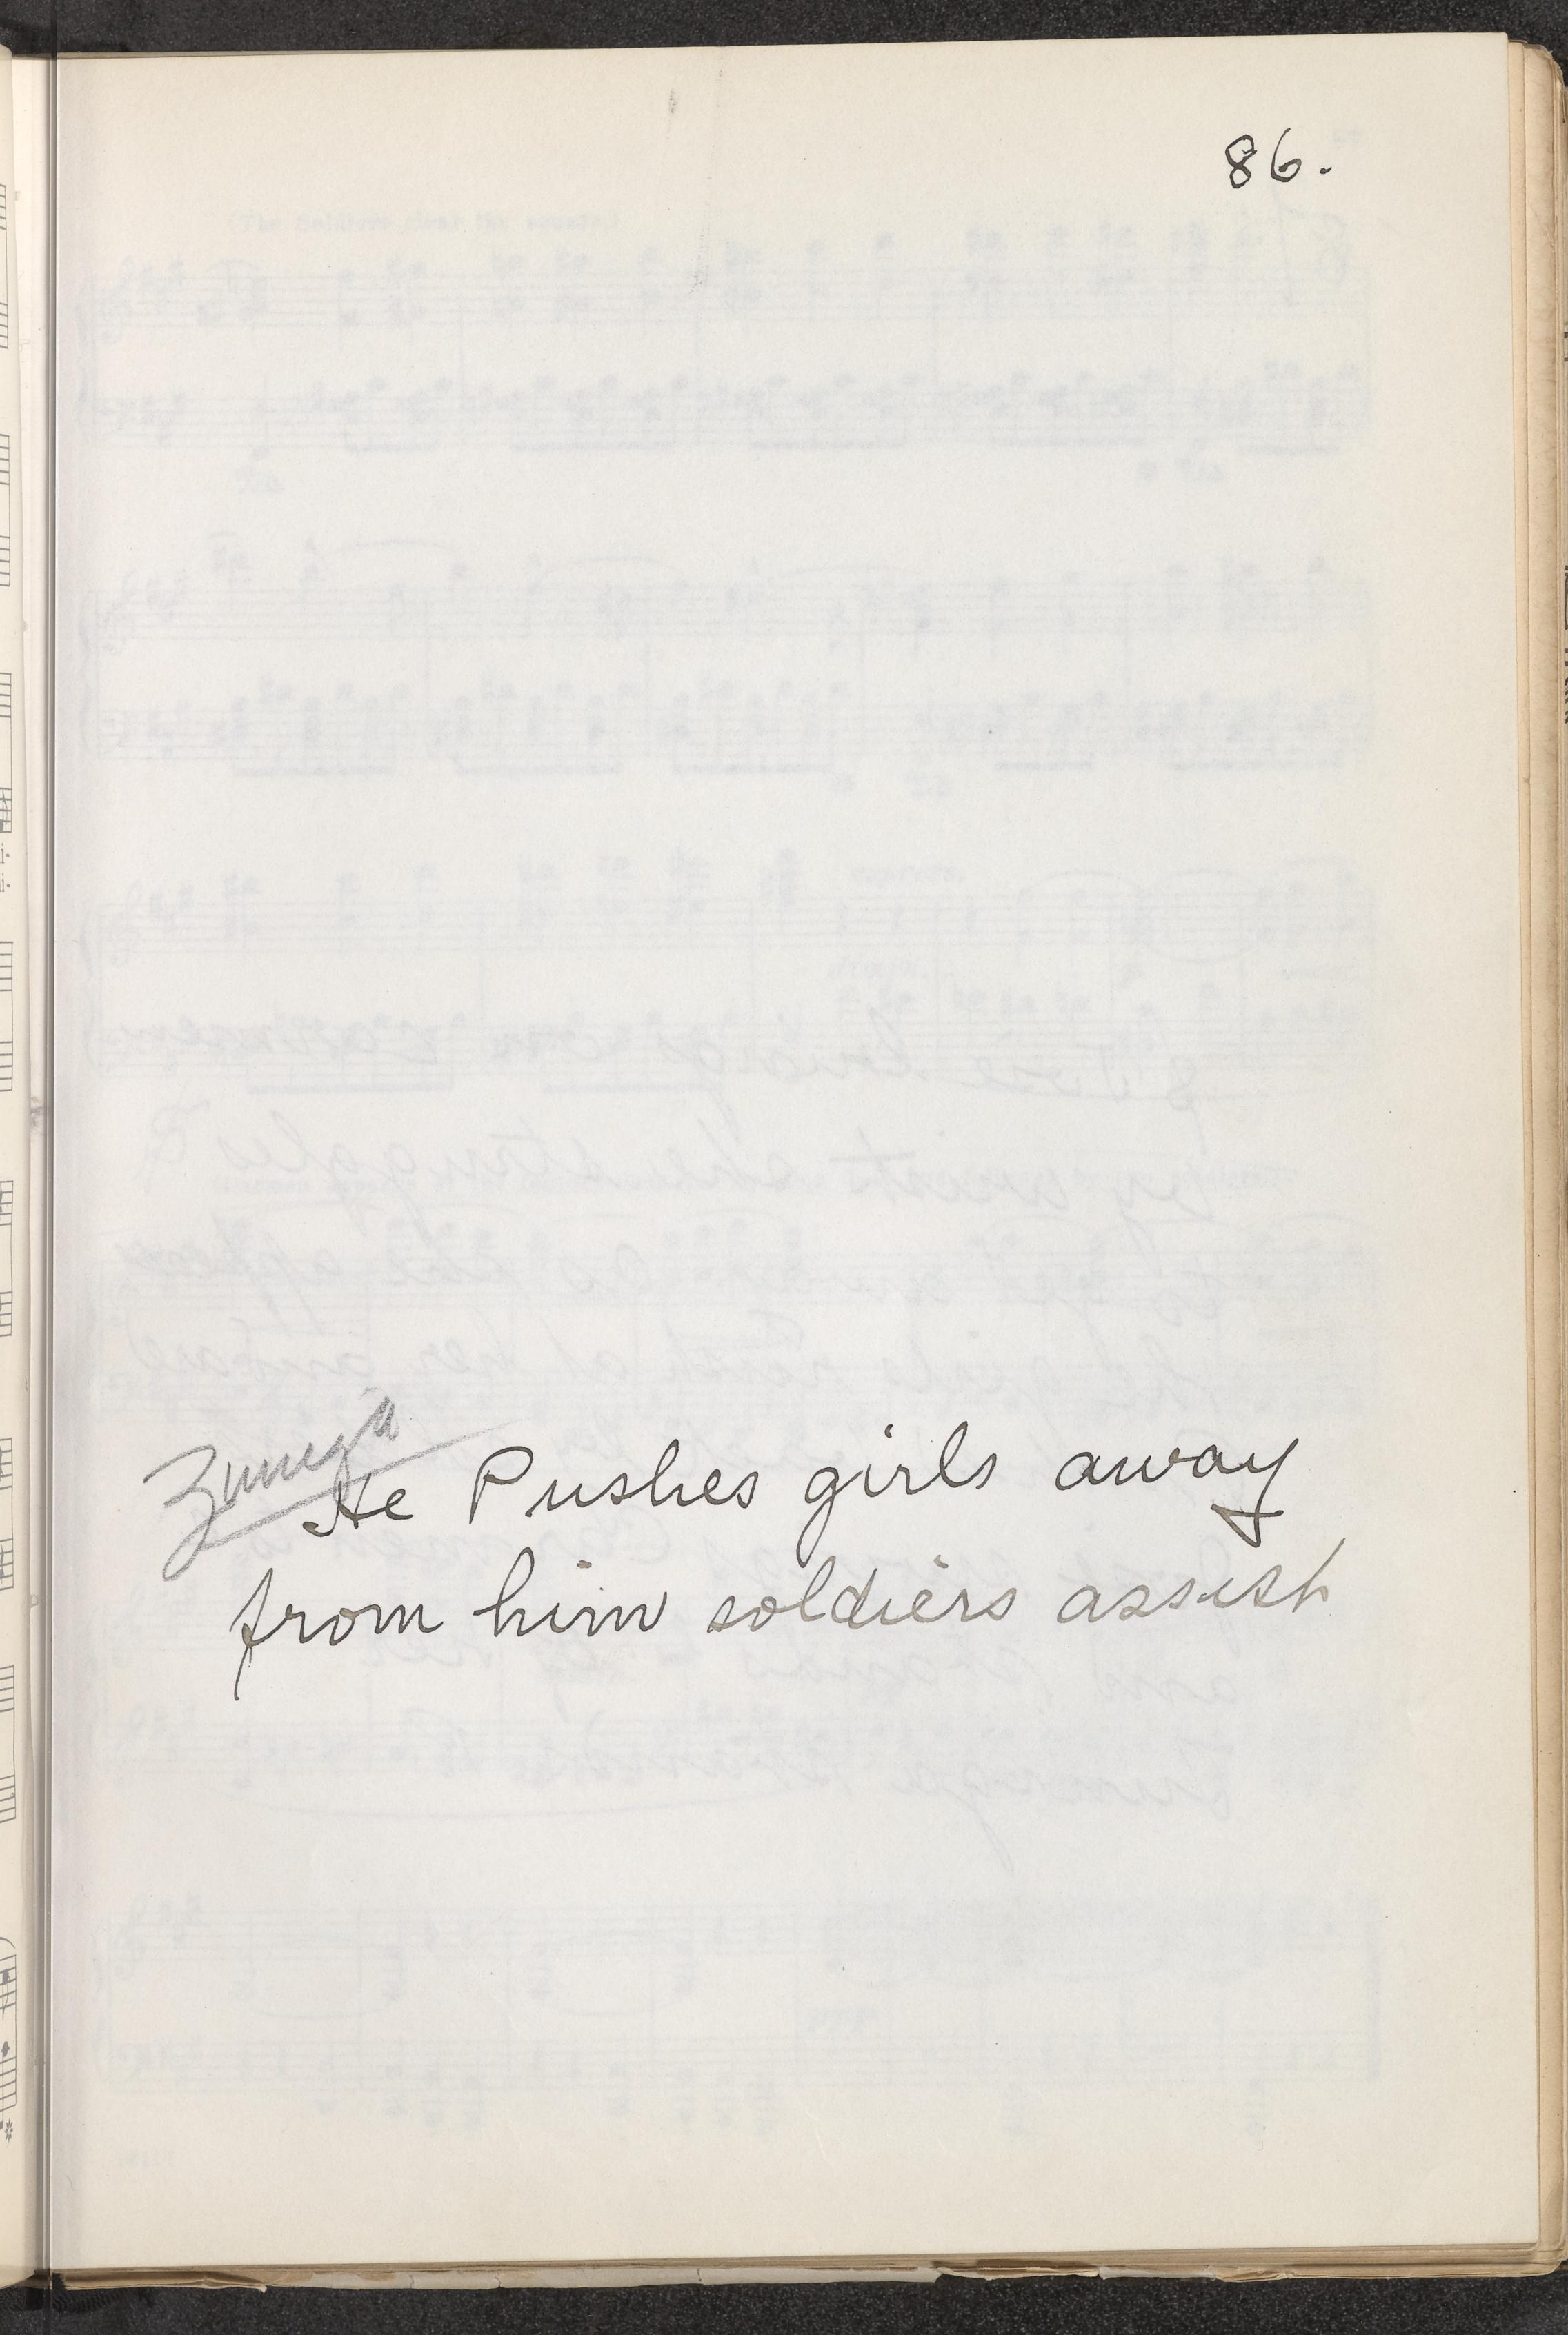 86.
Zuniga
He Pushes girls away
from him soldiers assist